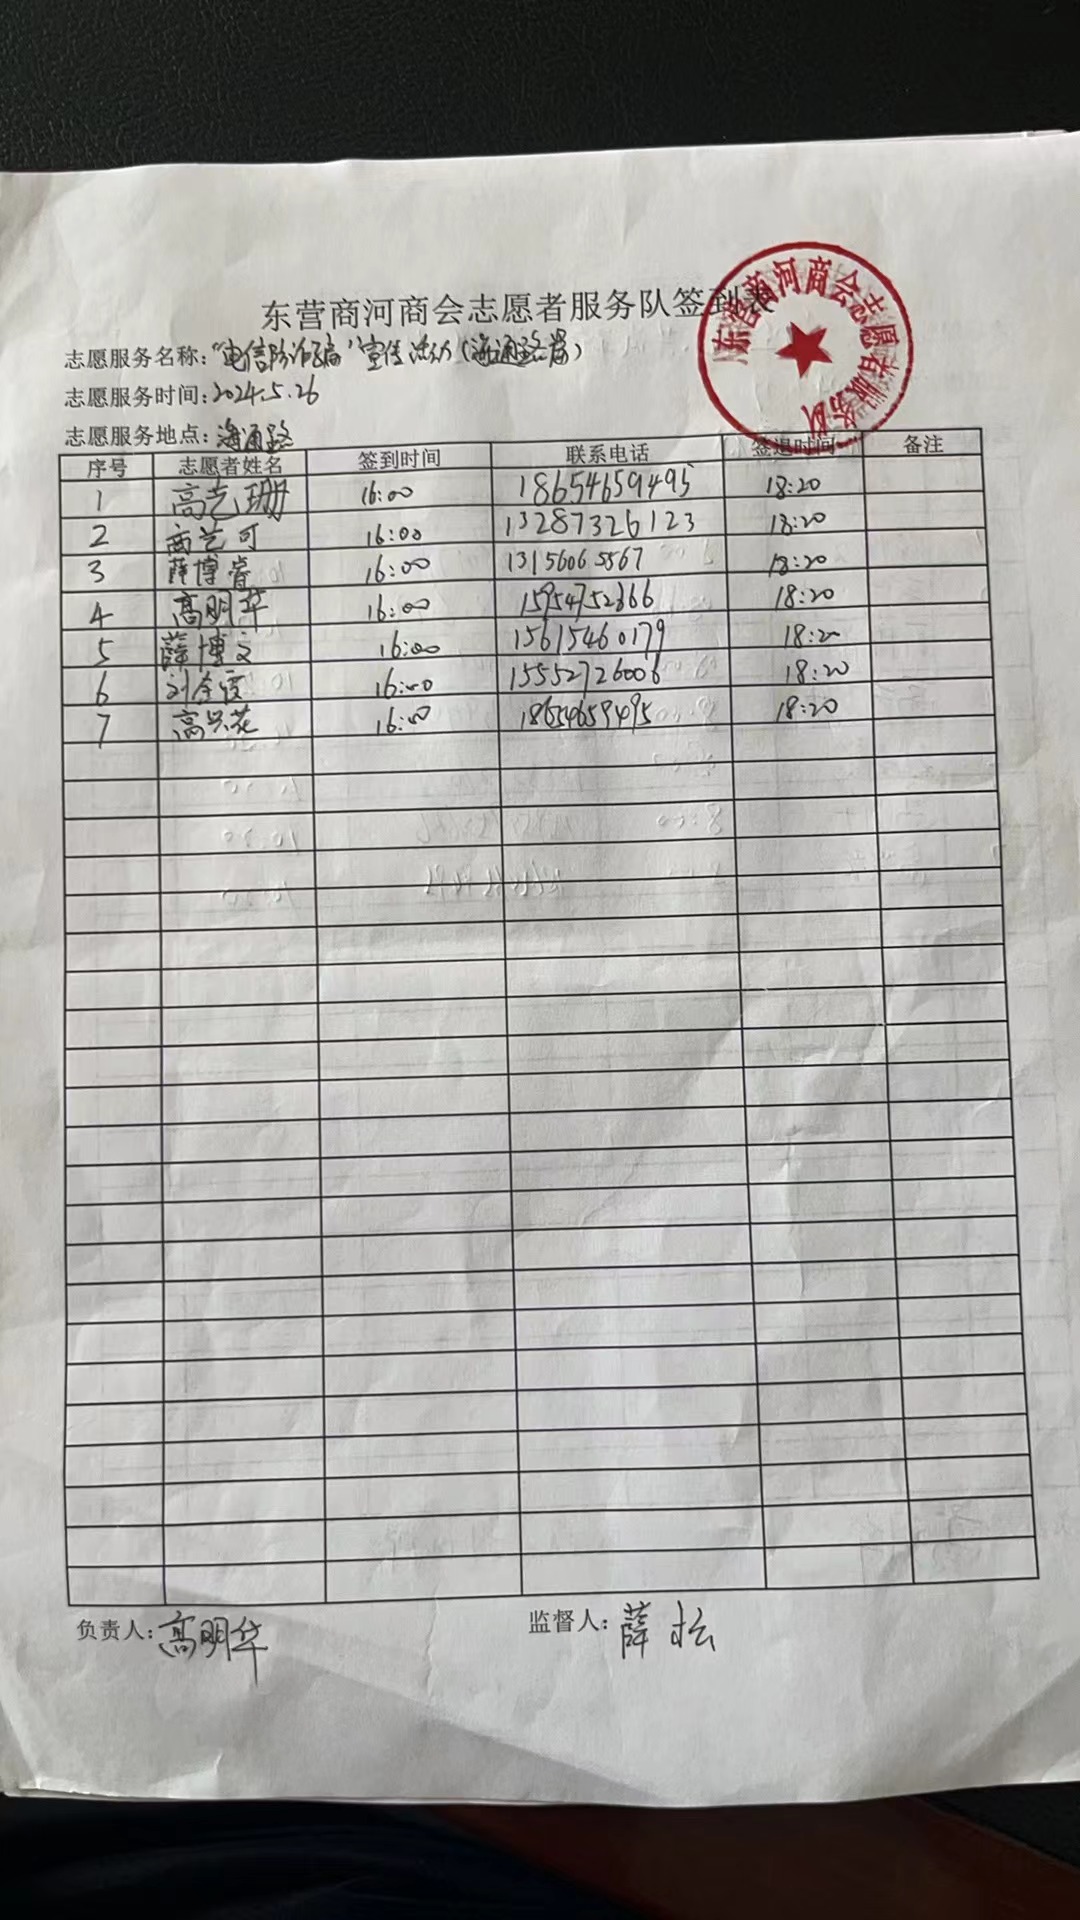 东营商河商会志愿者服务队签到表
东营商河商会志愿者服务队
志愿服务名称：“电信防诈骗”宣传活动（海通路第）
志愿服务时间：2024.5.26
志愿服务地点：海通路
序号 志愿者姓名 签到时间 联系电话 签退时间 备注
1 高艺珊 16:00 18654659495 18:20
2 商艺可 16:00 13287326123 18:20
3 薛博睿 16:00 13156065567 18:20
4 高明华 16:00 15954752666 18:20
5 薛博文 16:00 15615460179 18:20
6 刘 霞 16:00 15552726006 18:20
7 高兴花 16:00 18654659495 18:20
负责人：高明华 监督人：薛松